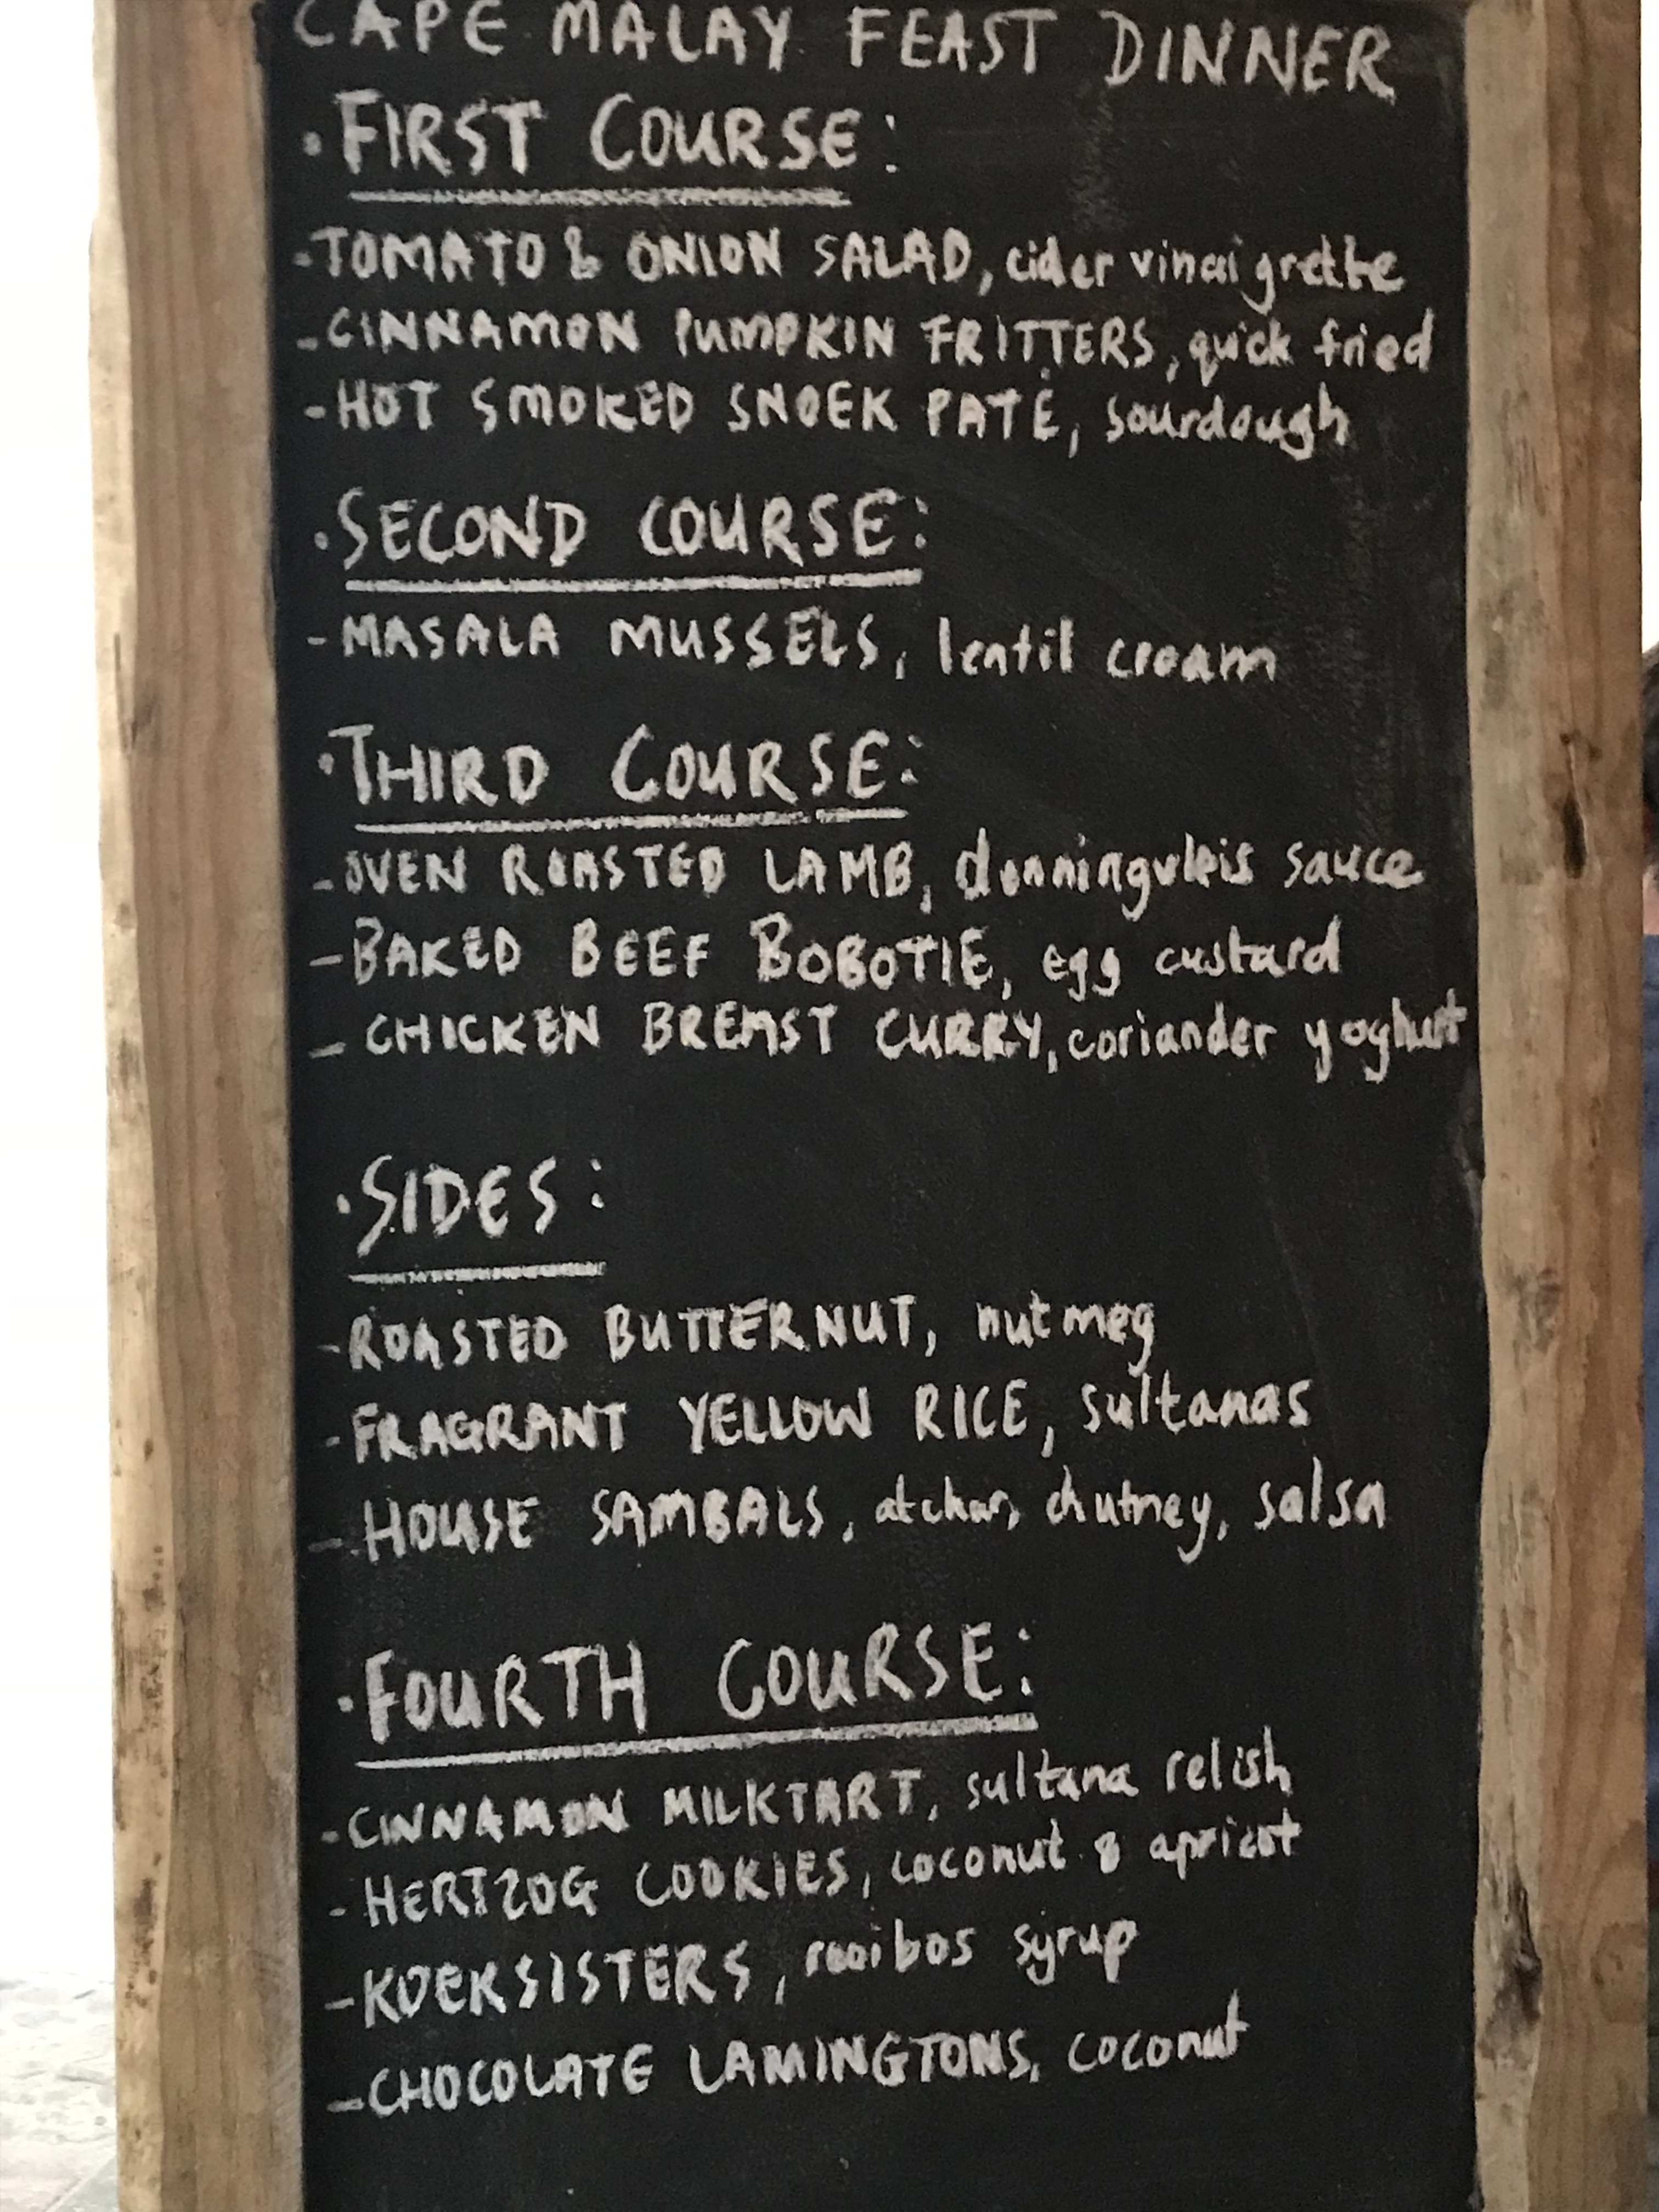 CAPE MALAY FEAST DINNER
· FIRST COURSE:
- TOMATO & ONION SALAD, cider vinaigrette
- CINNAMON PUMPKIN FRITTERS, quick fried
- HOT SMOKED SNOEK PATÉ, sourdough
· SECOND COURSE:
- MASALA MUSSELS, lentil cream
· THIRD COURSE:
- OVEN ROASTED LAMB, denningvleis sauce
- BAKED BEEF BOBOTIE, egg custard
- CHICKEN BREAST CURRY, coriander yoghurt
· SIDES:
- ROASTED BUTTERNUT, nutmeg
- FRAGRANT YELLOW RICE, sultanas
- HOUSE SAMBALS, atchar, chutney, salsa
· FOURTH COURSE:
- CINNAMON MILKTART, sultana relish
- HERTZOG COOKIES, coconut & apricot
- KOEKSISTERS, rooibos syrup
- CHOCOLATE LAMINGTONS, coconut